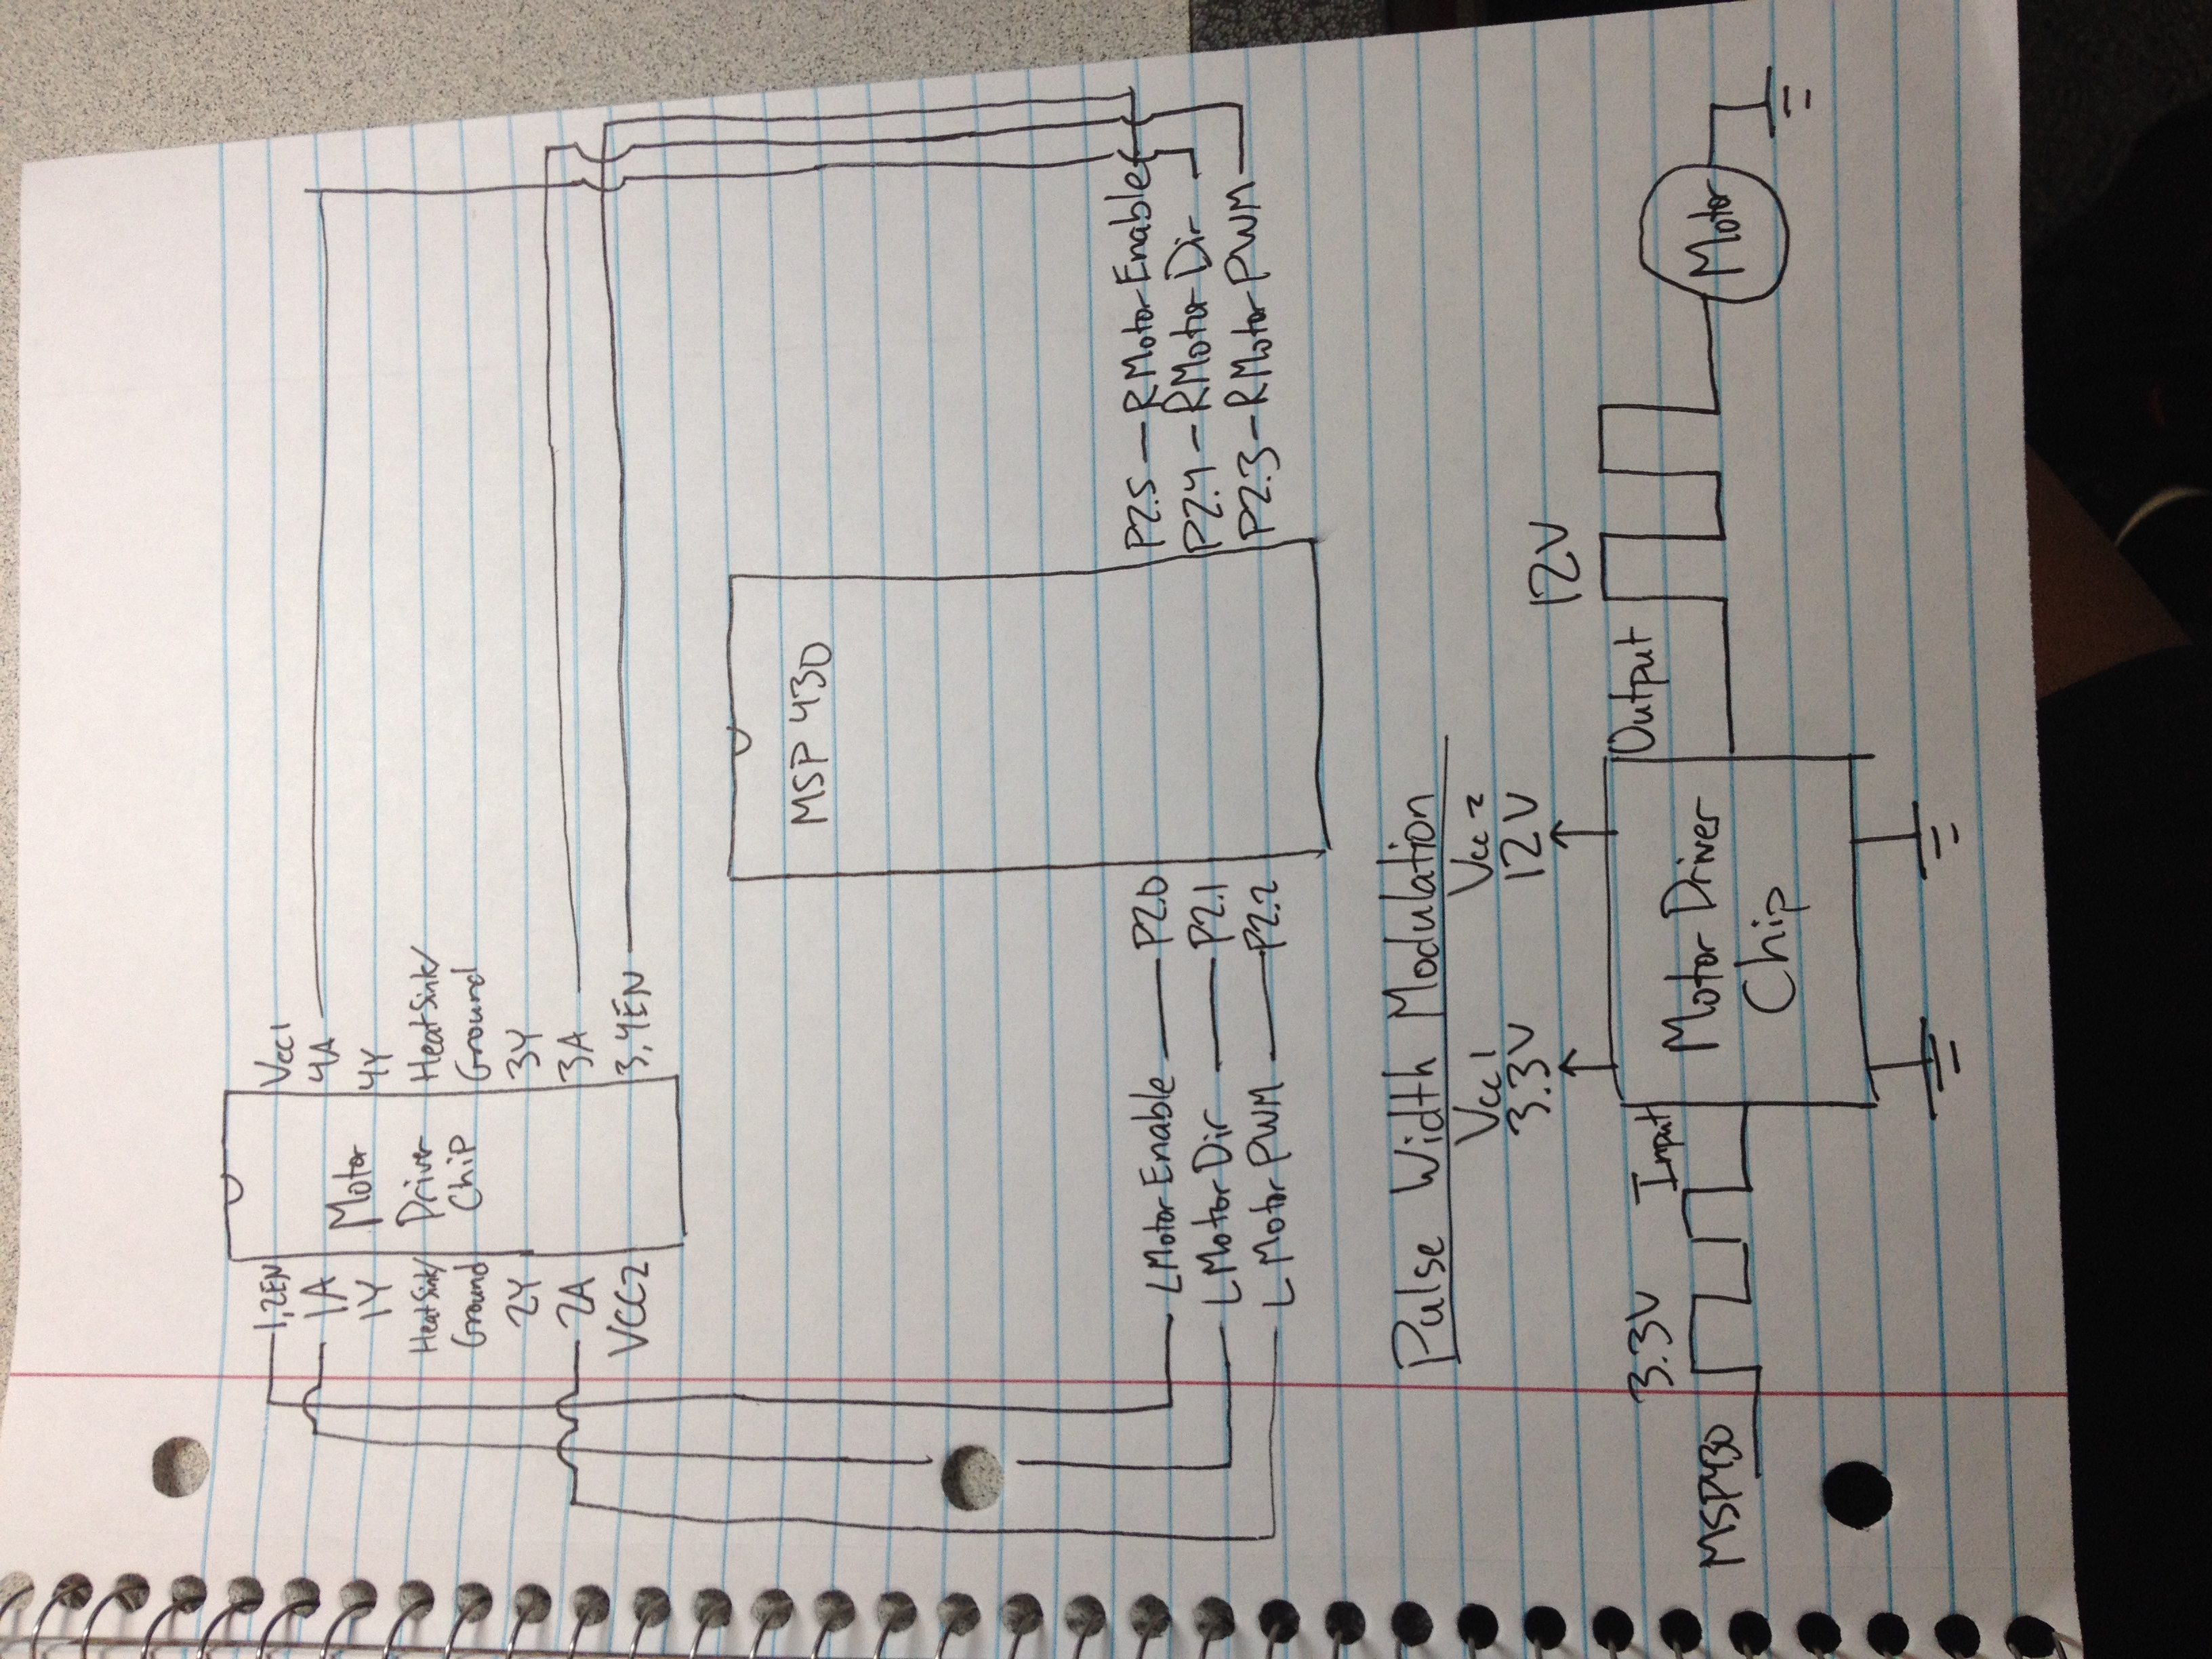 1,2EN
1A
1Y
Heat Sink/
Ground
2Y
2A
VCC2
Motor
Driver
Chip
Vcc1
4A
4Y
Heat Sink/
Ground
3Y
3A
3,4EN
MSP 430
L Motor Enable — P2.0
L Motor Dir — P2.1
L Motor PWM — P2.2
P2.5 — R Motor Enable
P2.4 — R Motor Dir
P2.3 — R Motor PWM
Pulse Width Modulation
Vcc1
3.3V
Vcc2
12V
12V
3.3V
MSP430
Input
Motor Driver
Chip
Output
Motor